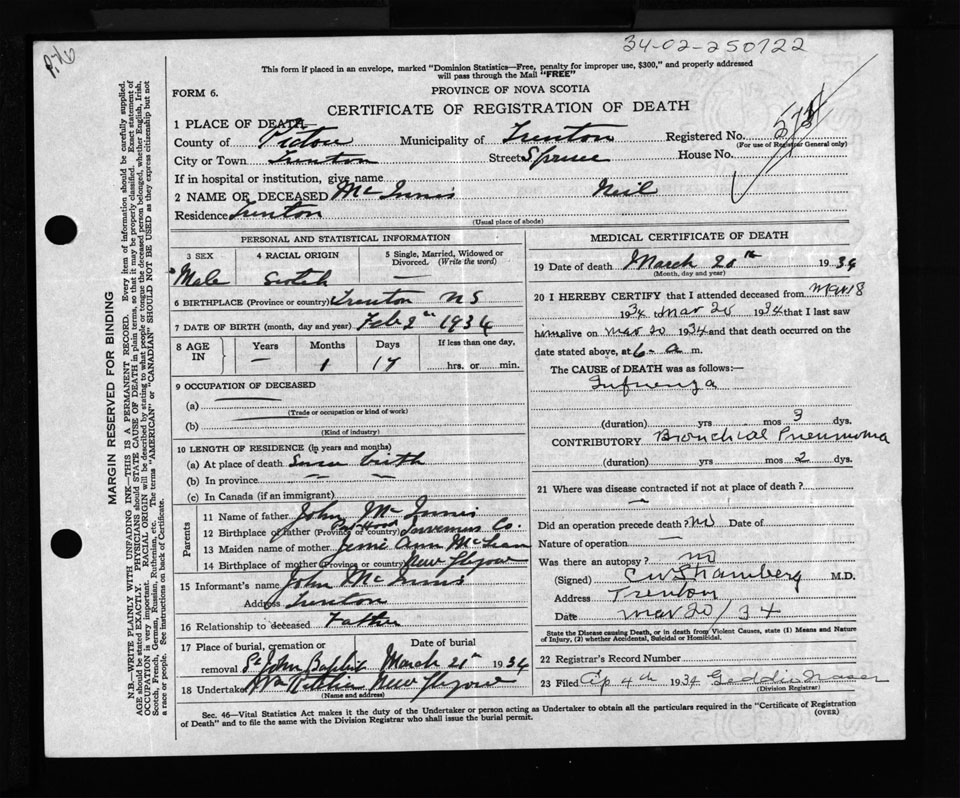 34-02-250722
This form if placed in an envelope, marked "Dominion Statistics—Free, penalty for improper use, $300," and properly addressed
will pass through the Mail "FREE"
FORM 6.
PROVINCE OF NOVA SCOTIA
CERTIFICATE OF REGISTRATION OF DEATH
1 PLACE OF DEATH
County of Pictou Municipality of Trenton Registered No.
(For use of Registrar General only)
City or Town Trenton Street Spruce House No.
If in hospital or institution, give name
2 NAME OF DECEASED McInnis Neil
Residence Trenton
(Usual place of abode)
PERSONAL AND STATISTICAL INFORMATION
3 SEX 4 RACIAL ORIGIN 5 Single, Married, Widowed or Divorced. (Write the word)
Male Scotch —
6 BIRTHPLACE (Province or country) Trenton N S
7 DATE OF BIRTH (month, day and year) Feb 2nd 1934
8 AGE IN Years Months Days If less than one day,
— 1 17 hrs. or min.
9 OCCUPATION OF DECEASED
(a)
(Trade or occupation or kind of work)
(b)
(Kind of industry)
10 LENGTH OF RESIDENCE (in years and months)
(a) At place of death Since birth
(b) In province — —
(c) In Canada (if an immigrant)
Parents
11 Name of father John McInnis
12 Birthplace of father (Province or country) Port Hood Inverness Co.
13 Maiden name of mother Jennie Ann McLean
14 Birthplace of mother (Province or country) New Glasgow
15 Informant's name John McInnis
Address Trenton
16 Relationship to deceased Father
17 Place of burial, cremation or removal St John Baptist Date of burial March 21st 1934
18 Undertaker New Glasgow
(Name and address)
MEDICAL CERTIFICATE OF DEATH
19 Date of death March 20th 1934
(Month, day and year)
20 I HEREBY CERTIFY that I attended deceased from Mar 18
1934 to Mar 20 1934 that I last saw
him alive on Mar 20 1934 and that death occurred on
date stated above, at 6- a m.
The CAUSE of DEATH was as follows:—
Influenza
(duration) yrs mos 3 dys.
CONTRIBUTORY Bronchial Pneumonia
(duration) yrs mos 2 dys.
21 Where was disease contracted if not at place of death?
—
Did an operation precede death? no Date of
Nature of operation —
Was there an autopsy? no
(Signed) M.D.
Address Trenton
Date Mar 20/34
State the Disease causing Death, or in death from Violent Causes, state (1) Means and Nature
of Injury, (2) whether Accidental, Suicidal or Homicidal.
22 Registrar's Record Number
23 Filed Ap 4th 1934 Geddie Fraser
(Division Registrar)
Sec. 46—Vital Statistics Act makes it the duty of the Undertaker or person acting as Undertaker to obtain all the particulars required in the "Certificate of Registration
of Death" and to file the same with the Division Registrar who shall issue the burial permit.
(OVER)
MARGIN RESERVED FOR BINDING
N.B.—WRITE PLAINLY WITH UNFADING INK—THIS IS A PERMANENT RECORD. Every item of information should be carefully supplied.
AGE should be stated EXACTLY. PHYSICIANS should STATE CAUSE OF DEATH in plain terms, so that it may be properly classified. Exact statement of
OCCUPATION is very important. RACIAL ORIGIN will be described by stating to what people or tongue the deceased person belonged, whether English, Irish,
Scotch, French, German, Russian, Ruthenian, etc. The terms "AMERICAN" or "CANADIAN" SHOULD NOT BE USED as they express citizenship but not
a race or people. See instructions on back of Certificate.